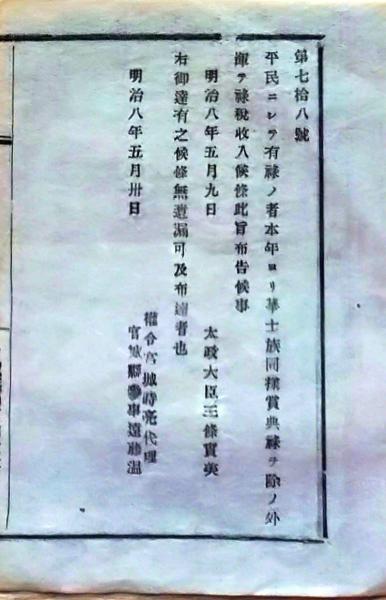 第七拾八號
平民ニシテ有祿ノ者本年ヨリ華士族同樣賞典祿ヲ除ノ外
渾テ祿稅收入候條此旨布告候事
明治八年五月九日　太政大臣三條實美
右御達有之候條無遺漏可及布達者也
權令宮城時亮代理
明治八年五月卅日　宮城縣參事遠藤溫